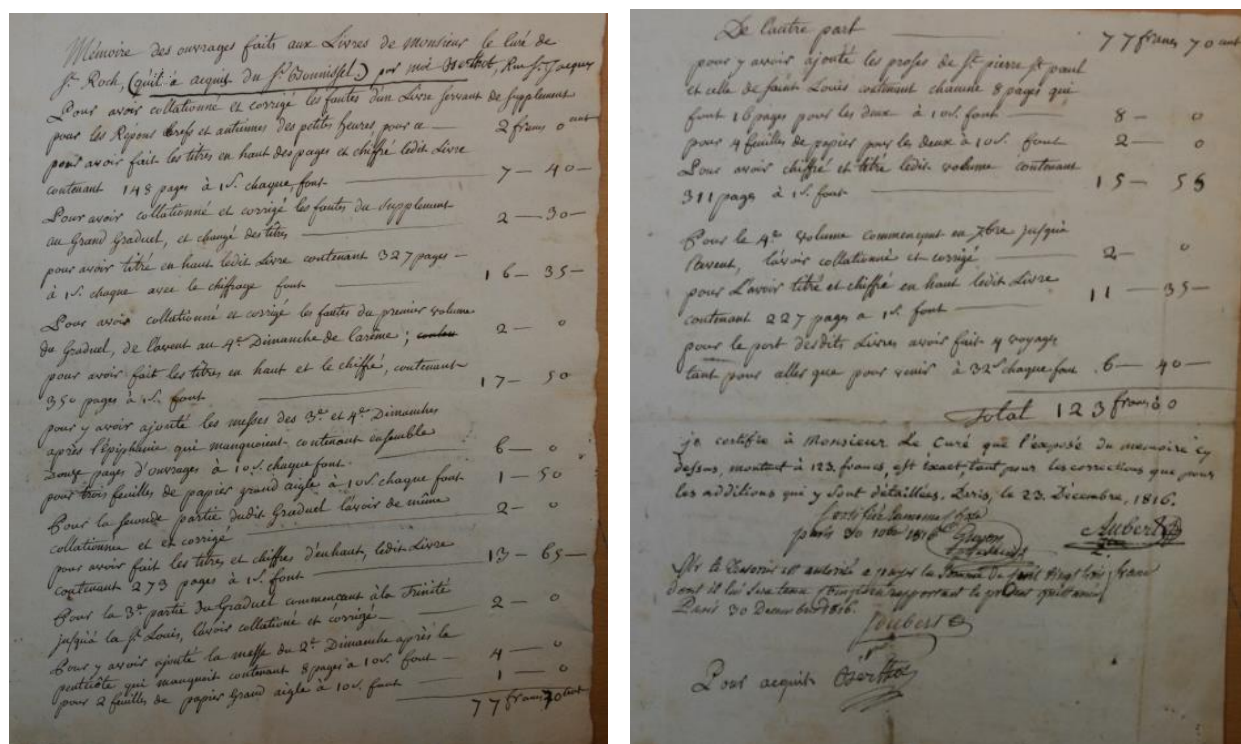 Mémoire des ouvrages faits aux Livres de Monsieur le Curé de
St. Roch, (qu'il a acquit du Sr. Bonnissel) par moi Berthot, Rue St. Jacques
Pour avoir collationné et corrigé les fautes d'un Livre servant de supplement
pour les Répons brefs et antiennes des petites heures pour ce — 2 francs 0 cent
pour avoir fait les titres en haut des pages et chiffré ledit Livre
contenant 148 pages à 1 s. chaque font — 7 — 40 —
Pour avoir collationné et corrigé les fautes du supplement
au Grand Graduel, et changé des titres — 2 — 30 —
pour avoir titré en haut ledit Livre contenant 327 pages —
à 1 s. chaque avec le chiffrage font — 16 — 35 —
Pour avoir collationné et corrigé les fautes du premier volume
du Graduel, de l'avent au 4e. Dimanche de Carême ; 2 — 0
pour avoir fait les titres en haut et le chiffré, contenant
350 pages à 1 s. font — 17 — 50
pour y avoir ajouté les messes des 3e. et 4e. Dimanches
après l'épiphanie qui manquoient contenant ensemble
Douze pages d'ouvrages à 10 s. chaque font. 6 — 0
pour trois feuilles de papier grand aigle à 10 s. chaque font 1 — 50
Pour la seconde partie dudit Graduel l'avoir de même
collationnée et corrigé — 2 — 0
pour avoir fait les titres et chiffres d'enhaut, ledit Livre
contenant 273 pages à 1 s. font — 13 — 65 —
Pour la 3e. partie du Graduel commençant à la Trinité
jusqu'à la St. Louis, l'avoir collationé et corrigé — 2 — 0
Pour y avoir ajouté la messe du 2e. Dimanche après la
pentecôte qui manquoit contenant 8 pages à 10 s. font — 4 — 0
pour 2 feuilles de papier Grand aigle à 10 s. font — 1 — 0
77 francs 70 cent
De l'autre part — 77 francs 70 cent
pour y avoir ajouté les proses de St. pierre St. paul
et celle de saint Louis contenant chacune 8 pages qui
font 16 pages pour les deux à 10 s. font — 8 — 0
pour 4 feuilles de papier pour les deux à 10 s. font 2 — 0
Pour avoir chiffré et titré ledit volume contenant
311 pages à 1 s. font — 15 — 55
Pour le 4e. volume commençant en 7bre jusqu'à
l'avent, l'avoir collationné et corrigé — 2 — 0
pour l'avoir titré et chiffré en haut ledit Livre
contenant 227 pages a 1 s. font — 11 — 35 —
pour le port desdits Livres avoir fait 4 voyages
tant pour aller que pour venir à 32 s. chaque font 6 — 40 —
Total 123 francs 0
je certifie à Monsieur Le Curé que l'exposé du memoire cy
dessus, montant à 123. francs, est exact, tant pour les corrections que pour
les additions qui y sont détaillées. Paris, le 23. Décembre, 1816.
paris 30 1816
Aubert
Mr le Tresorier est autorisé a payer la somme de cent vingt trois francs
dont il lui sera tenu compte en rapportant le présent quittancé
Paris 30 Decembre 1816.
Pour acquit Berthot